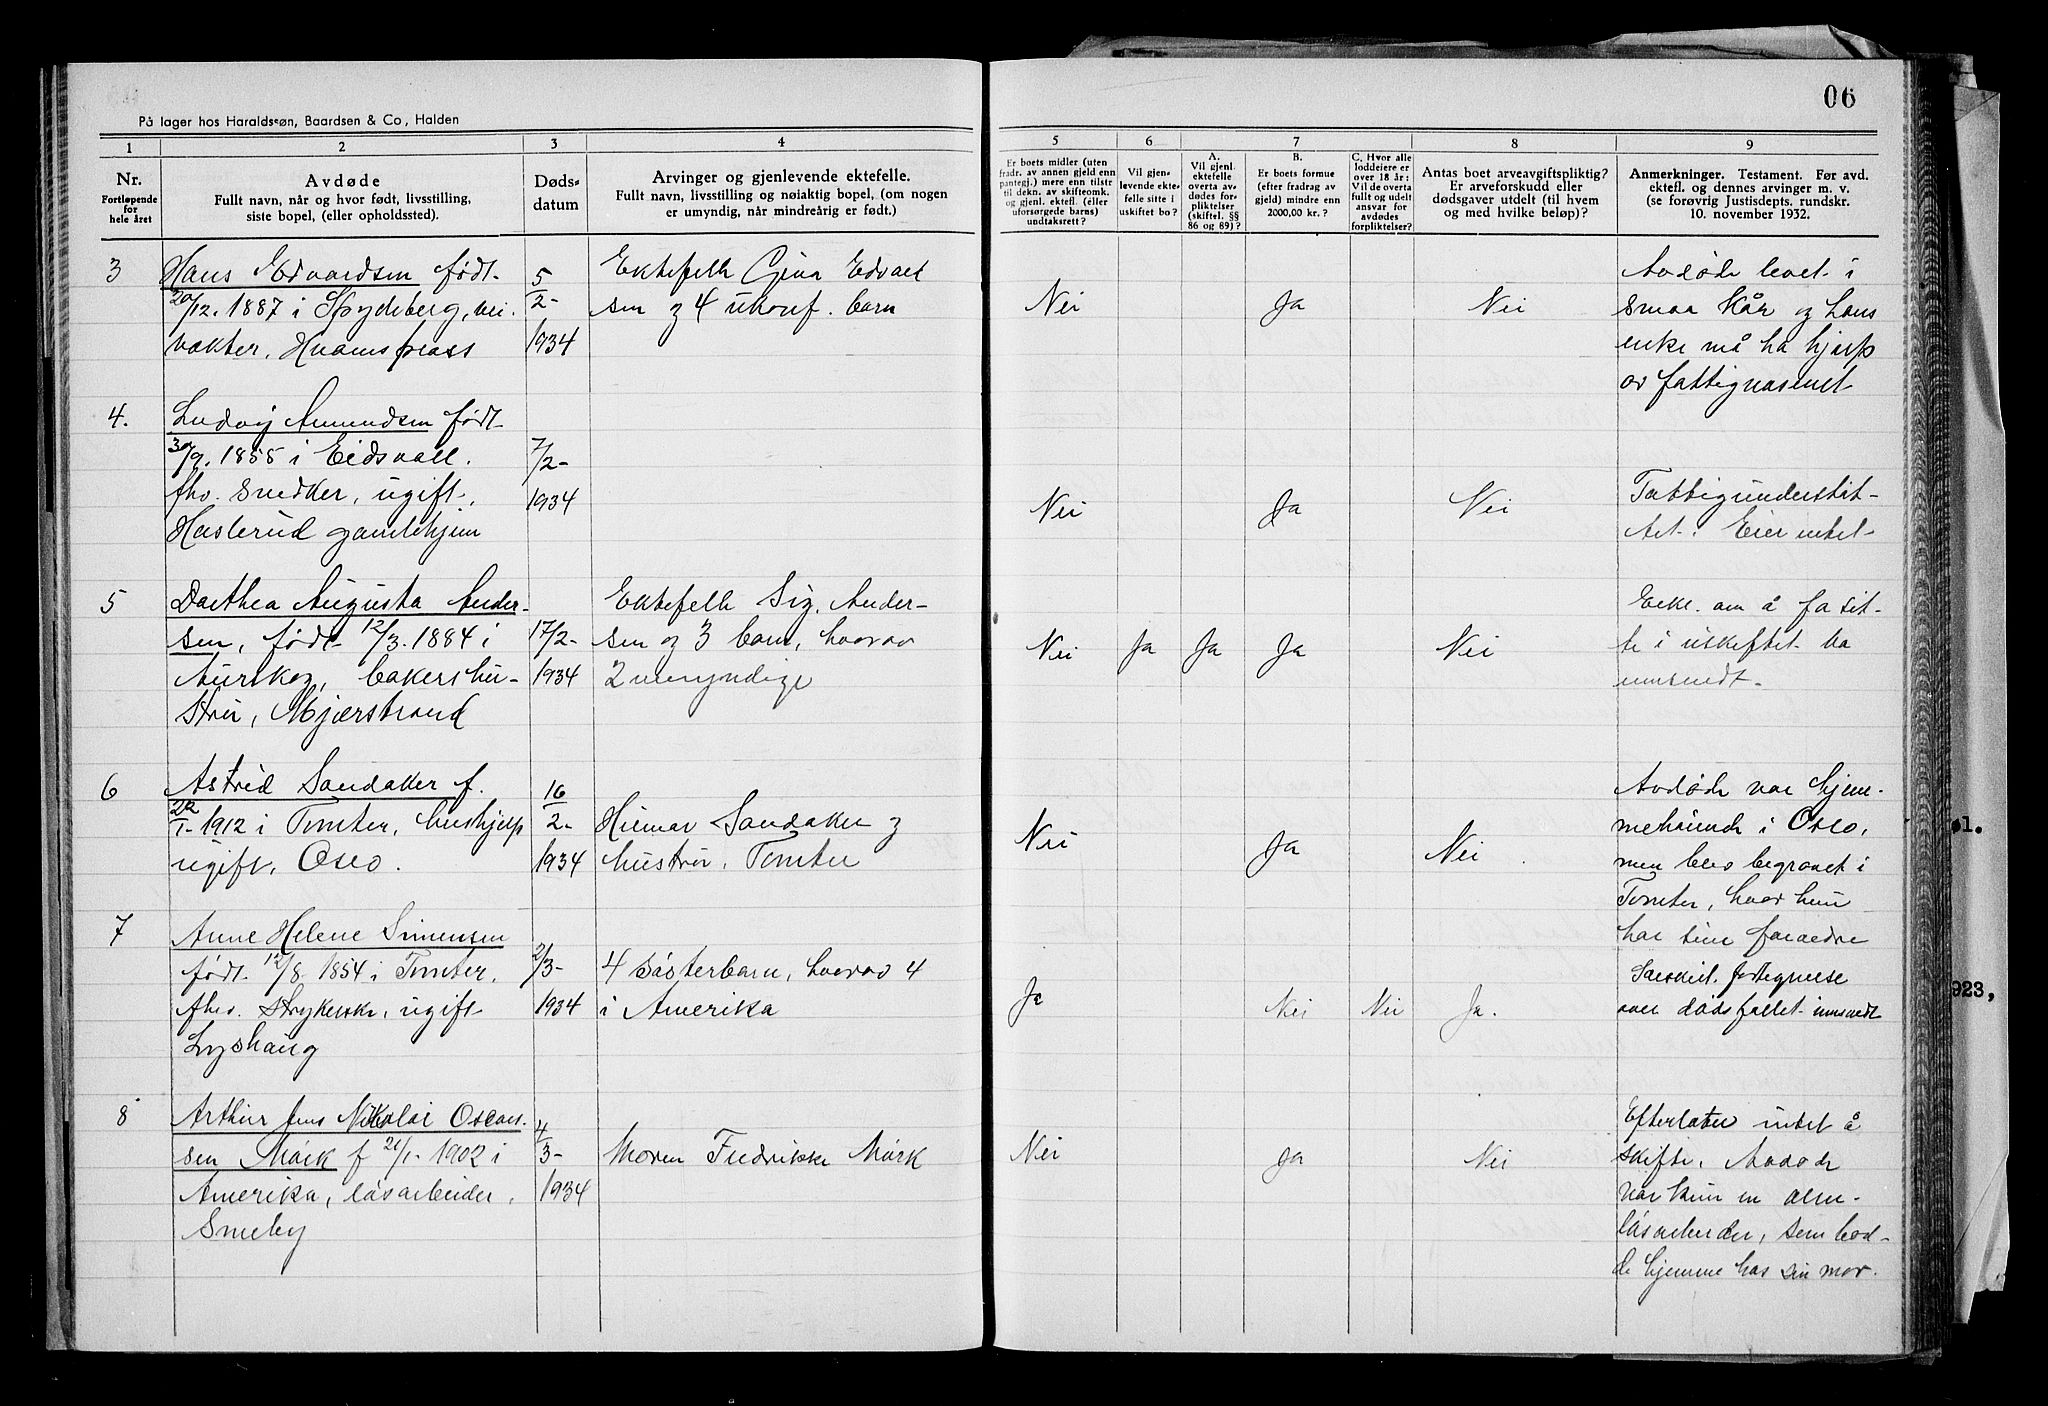 06
På lager hos Haraldssøn, Baardsen & Co, Halden
1 2 3 4 5 6 7 8 9
Nr.
Fortløpende
for
hele året
Avdøde
Fullt navn, når og hvor født, livsstilling,
siste bopel, (eller opholdssted).
Døds-
datum
Arvinger og gjenlevende ektefelle.
Fullt navn, livsstilling og nøiaktig bopel, (om nogen
er umyndig, når mindreårig er født.)
Er boets midler (uten
fradr. av annen gjeld enn
pantegj.) mere enn tilstr
til dekn. av skifteomk.
og gjenl. ektefl. (eller
uforsørgede barns)
undtaksrett?
Vil gjen-
levende ekte-
felle sitte i
uskiftet bo?
A.
Vil gjenl.
ektefelle
overta av-
dødes for-
pliktelser
(skiftel. §§
86 og 89)?
B.
Er boets formue
(efter fradrag av
gjeld) mindre enn
2000,00 kr.?
C. Hvor alle
loddeiere er
over 18 år:
Vil de overta
fullt og udelt
ansvar for
avdødes
forpliktelser?
Antas boet arveavgiftspliktig?
Er arveforskudd eller
dødsgaver utdelt (til hvem
og med hvilke beløp)?
Anmerkninger. Testament. Før avd.
ektefl. og dennes arvinger m. v.
(se forøvrig Justisdepts. rundskr.
10. november 1932.
3
Hans Edvardsen født
20/12. 1887 i Spydeberg, vei-
vakter, Hvamsplass
5/2-
1934
Ektefelle Gina Edvard
sen og 4 ukonf. barn
Nei
Ja
Nei
Avdøde levet i
smaa kår og hans
enke må ha hjelp
av fattigvesenet
4.
Ludvig Amundsen født
30/9. 1855 i Eidsvoll.
fhv. snedker, ugift,
Haslerud gamlehjem
7/2-
1934
Nei
Ja
Nei
Fattigunderstøt-
tet. Eier intet
5
Dorthea Augusta Ander-
sen, født 12/3. 1884 i
Aurskog, bakershu-
stru, Mjærstrand
17/2-
1934
Ektefelle Sig. Ander-
sen og 3 barn, hvorav
2 umyndige
Nei
Ja
Ja
Ja
Nei
Erkl. om å få sit-
te i uskiftet bo
innsendt
6
Astrid Sandaker f.
22/1- 1912 i Tomter, hushjelp
ugift, Oslo.
16/2-
1934
Hilmar Sandaker og
hustru, Tomter
Nei
Ja
Nei
Avdøde var hjem-
mehørende i Oslo,
men blev begravet i
Tomter, hvor hun
har sine foreldre
øl.
7
Anne Helene Simensen
født 12/8 1854 i Tomter,
fhv. strykerske, ugift
Lyshaug
2/3-
1934
4 søsterbarn, hvorav 4
i Amerika
Ja
Nei
Nei
Ja.
Særskilt fortegnelse
over dødsfallet innsendt
923,
8
Arthur Jens Nikolai Oscar-
sen Mørk f 21/1- 1902 i
Amerika, løsarbeider,
Smeby
4/3-
1934
Moren Fredrikke Mørk
Nei
Ja
Nei
Efterlater intet å
skifte. Avdøde
var kun en alm.
løsarbeider, som bod-
de hjemme hos sin mor.